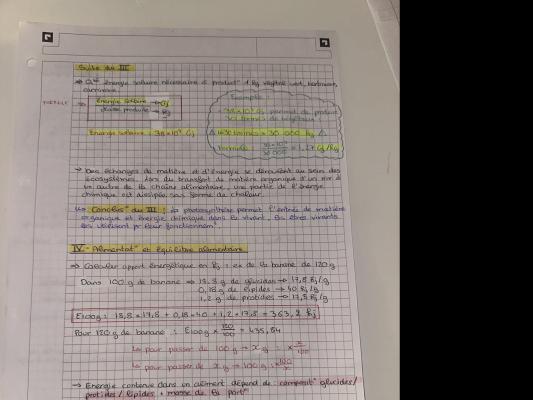 Suite du III
⇒ Qté énergie solaire nécessaire à product° 1 kg végétal vert, herbivore,
carnivore
FORMULE ⇒ Énergie solaire → Gj
masse produite → kg
Exemple
38×10³ Gj permet de produire
30 tonnes de végétaux :
Énergie solaire : 38×10³ Gj
⚠ 30 tonnes = 30 000 kg ⚠
Formule : 38×10³ / 30 000 = 1,27 Gj/kg
→ Des échanges de matière et d'énergie se déroulent au sein des
écosystèmes. Lors du transfert de matière organique d'un niv à
un autre de la chaîne alimentaire, une partie de l'énergie
chimique est dissipée sous forme de chaleur.
↳ Conclus° du III : la photosynthèse permet l'entrée de matière
organique et énergie chimique dans le vivant. Les êtres vivants
les utilisent pr leur fonctionnem^t.
IV - Alimentat° et équilibre alimentaire
⇒ Calculer apport énergétique en kj : ex de la banane de 120g
Dans 100g de banane ⇒ 19,8g de glucides → 17,8 kj/g
0,18g de lipides → 40 kj/g
1,2g de protides → 17,8 kj/g
E100g : 19,8×17,8 + 0,18×40 + 1,2×17,8 = 363,2 kj
Pour 120g de banane : E100g × 120/100 = 435,84
↳ pour passer de 100g → x g : × x/100
↳ pour passer de x g → 100g : × 100/x
→ Énergie contenue dans un aliment dépend de : composit° glucides/
protides/lipides + masse de la port°